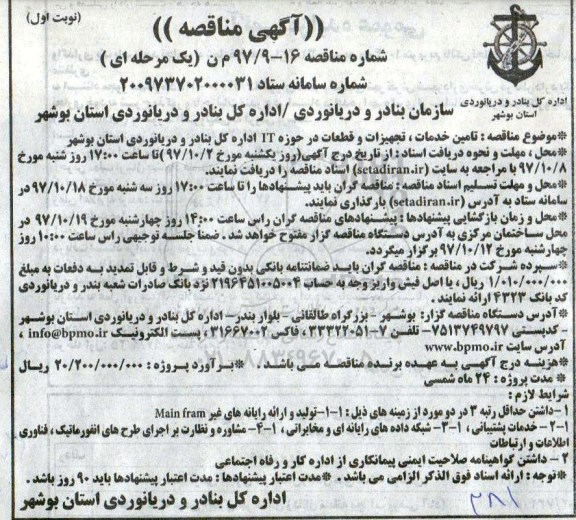 (نوبت اول)
((آگهی مناقصه))
شماره مناقصه ۱۶-۹۷/۹ م ن (یک مرحله ای)
شماره سامانه ستاد ۲۰۰۹۷۳۷۰۲۰۰۰۰۳۱
اداره کل بنادر و دریانوردی
استان بوشهر
سازمان بنادر و دریانوردی /اداره کل بنادر و دریانوردی استان بوشهر
*موضوع مناقصه : تامین خدمات ، تجهیزات و قطعات در حوزه IT اداره کل بنادر و دریانوردی استان بوشهر
*محل ، مهلت و نحوه دریافت اسناد : از تاریخ درج آگهی(روز یکشنبه مورخ ۹۷/۱۰/۲ )تا ساعت ۱۷:۰۰ روز شنبه مورخ
۹۷/۱۰/۸ با مراجعه به سایت (setadiran.ir) اسناد مناقصه را دریافت نمایند.
*محل و مهلت تسلیم اسناد مناقصه : مناقصه گران باید پیشنهادها را تا ساعت ۱۷:۰۰ روز سه شنبه مورخ ۹۷/۱۰/۱۸ در
سامانه ستاد به آدرس (setadiran.ir) بارگذاری نمایند.
*محل و زمان بازگشایی پیشنهادها : پیشنهادهای مناقصه گران راس ساعت ۱۴:۰۰ روز چهارشنبه مورخ ۹۷/۱۰/۱۹ در
محل ساختمان مرکزی به آدرس دستگاه مناقصه گزار مفتوح خواهد شد . ضمنا جلسه توجیهی راس ساعت ۱۰:۰۰ روز
چهارشنبه مورخ ۹۷/۱۰/۱۲ برگزار میگردد.
*سپرده شرکت در مناقصه : مناقصه گران باید ضمانتنامه بانکی بدون قید و شرط و قابل تمدید به دفعات به مبلغ
۱/۰۱۰/۰۰۰/۰۰۰ ریال ، یا اصل فیش واریز وجه به حساب ۲۱۹۶۴۵۱۰۰۵۰۰۴ نزد بانک صادرات شعبه بندر و دریانوردی
کد بانک ۴۳۲۳ ارائه نمایند .
*آدرس دستگاه مناقصه گزار: بوشهر - بزرگراه طالقانی - بلوار بندر- اداره کل بنادر و دریانوردی استان بوشهر
- کدپستی ۷۵۱۳۷۴۹۷۹۷- تلفن ۷-۳۳۳۲۲۰۵۱ ، فاکس ۳۱۶۶۷۰۰۲ ، پست الکترونیک info@bpmo.ir ،
آدرس سایت www.bpmo.ir
*هزینه درج آگهی به عهده برنده مناقصه می باشد . *برآورد پروژه : ۲۰/۲۰۰/۰۰۰/۰۰۰ ریال
* مدت پروژه : ۲۴ ماه شمسی
شرایط لازم :
۱-داشتن حداقل رتبه ۳ در دو مورد از زمینه های ذیل : ۱-۱-تولید و ارائه رایانه های غیر Main fram
۱-۲- خدمات پشتیبانی ، ۱-۳- شبکه داده های رایانه ای و مخابراتی ، ۱-۴- مشاوره و نظارت بر اجرای طرح های انفورماتیک ، فناوری
اطلاعات و ارتباطات
۲ - داشتن گواهینامه صلاحیت ایمنی پیمانکاری از اداره کار و رفاه اجتماعی
*توجه : ارائه اسناد فوق الذکر الزامی می باشد . *مدت اعتبار پیشنهادها : مدت اعتبار پیشنهادها باید ۹۰ روز باشد .
اداره کل بنادر و دریانوردی استان بوشهر